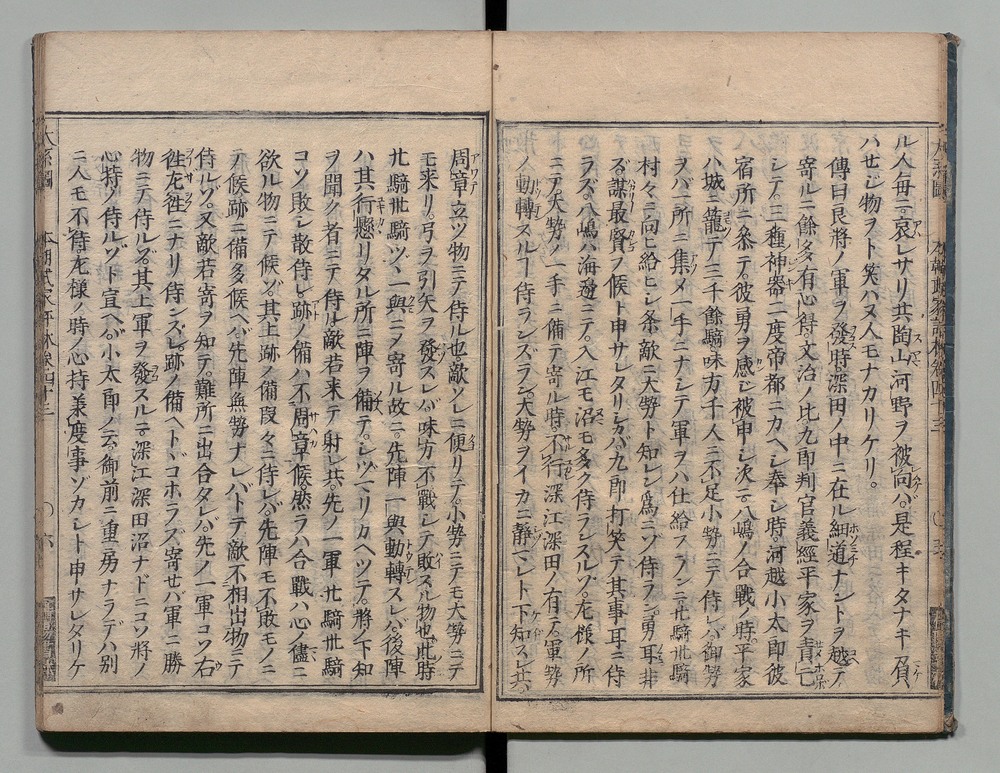 ル人毎ニ哀レサリ共陶山河野ヲ被向ハ是程キタナキ負
ハせジ物ヲト笑ハヌ人モナカリケリ。
傳曰良將ノ軍ヲ發時深田ノ中ニ在ル細道ナントラ越テ
寄ルニ餘多有心得文治ノ比九郎判官義經平家ヲ責亡
シテ三種神器二度帝都ニカヘシ奉シ時河越小太郎彼
宿所ニ条テ彼勇ヲ感ジ被申シ次ニ八嶋ノ合戰ノ時平家
ハ城ニ籠テ三千餘騎味方千人ニ不足小勢ニテ侍レバ御勢
ヲバ一所ニ集メ一手ニナシテ軍ヲハ仕給ズシテ廿騎卅騎
村々ニ向ヒ給ヒシ条敵ニ大勢ト知レン爲ニゾ侍ラン勇耳非
ズ謀最賢フ候ト申サレタリシカバ九郎打笑テ其事耳ニ侍
ラズ八嶋ハ海邊ニテ入江モ沼モ多ク侍ランスルゾ左様ノ所
ニテ大勢ノ一手ニ備テ寄ル時不行深江深田ノ有テ軍勢
ノ動轉スルヿ侍ランズラン大勢ヲイカニ靜ヿント下知スレ共
周章立ツ物ニテ侍ル也敵ソレニ便リテ小勢ニテモ大勢ニテ
モ来リ弓ヲ引矢ヲ發スレバ味方不戰シテ敗スル物也此時
廿騎卅騎ヅヽ一與ニシテ寄ル故ニ先陣一與動轉スレバ後陣
ハ其行懸リタル所ニ陣ヲ備テシヅヽリカヘツテ將ノ下知
ヲ聞ク者ニテ侍ル敵若来テ射レ共先ノ一軍廿騎卅騎
コソ敗シ散侍レ跡ノ備ハ不周章候然ラハ合戰ハ心ノ儘ニ
欲ル物ニテ候ゾ其上跡ノ備段々ニ侍レバ先陣モ不敗モノニ
テ候跡ニ備多候ヘバ先陣無勢ナレバトテ敵不相出物ニテ
侍ルゾ又敵若寄ヲ知テ難所ニ出合タレバ先ノ一軍コソ右
徃左徃ニナリ侍ンズレ跡ノ備ヘトヾコホラズ寄せバ軍ニ勝
物ニテ侍ルゾ其上軍ヲ發スルニ深江深田沼ナドニコソ將ノ
心持ノ侍ルゾト宣ヘバ小太郎ノ云御前ニ重房ナラデハ別
ニ人モ不侍左様ノ時ノ心持兼度事ゾカシト申サレタリケ